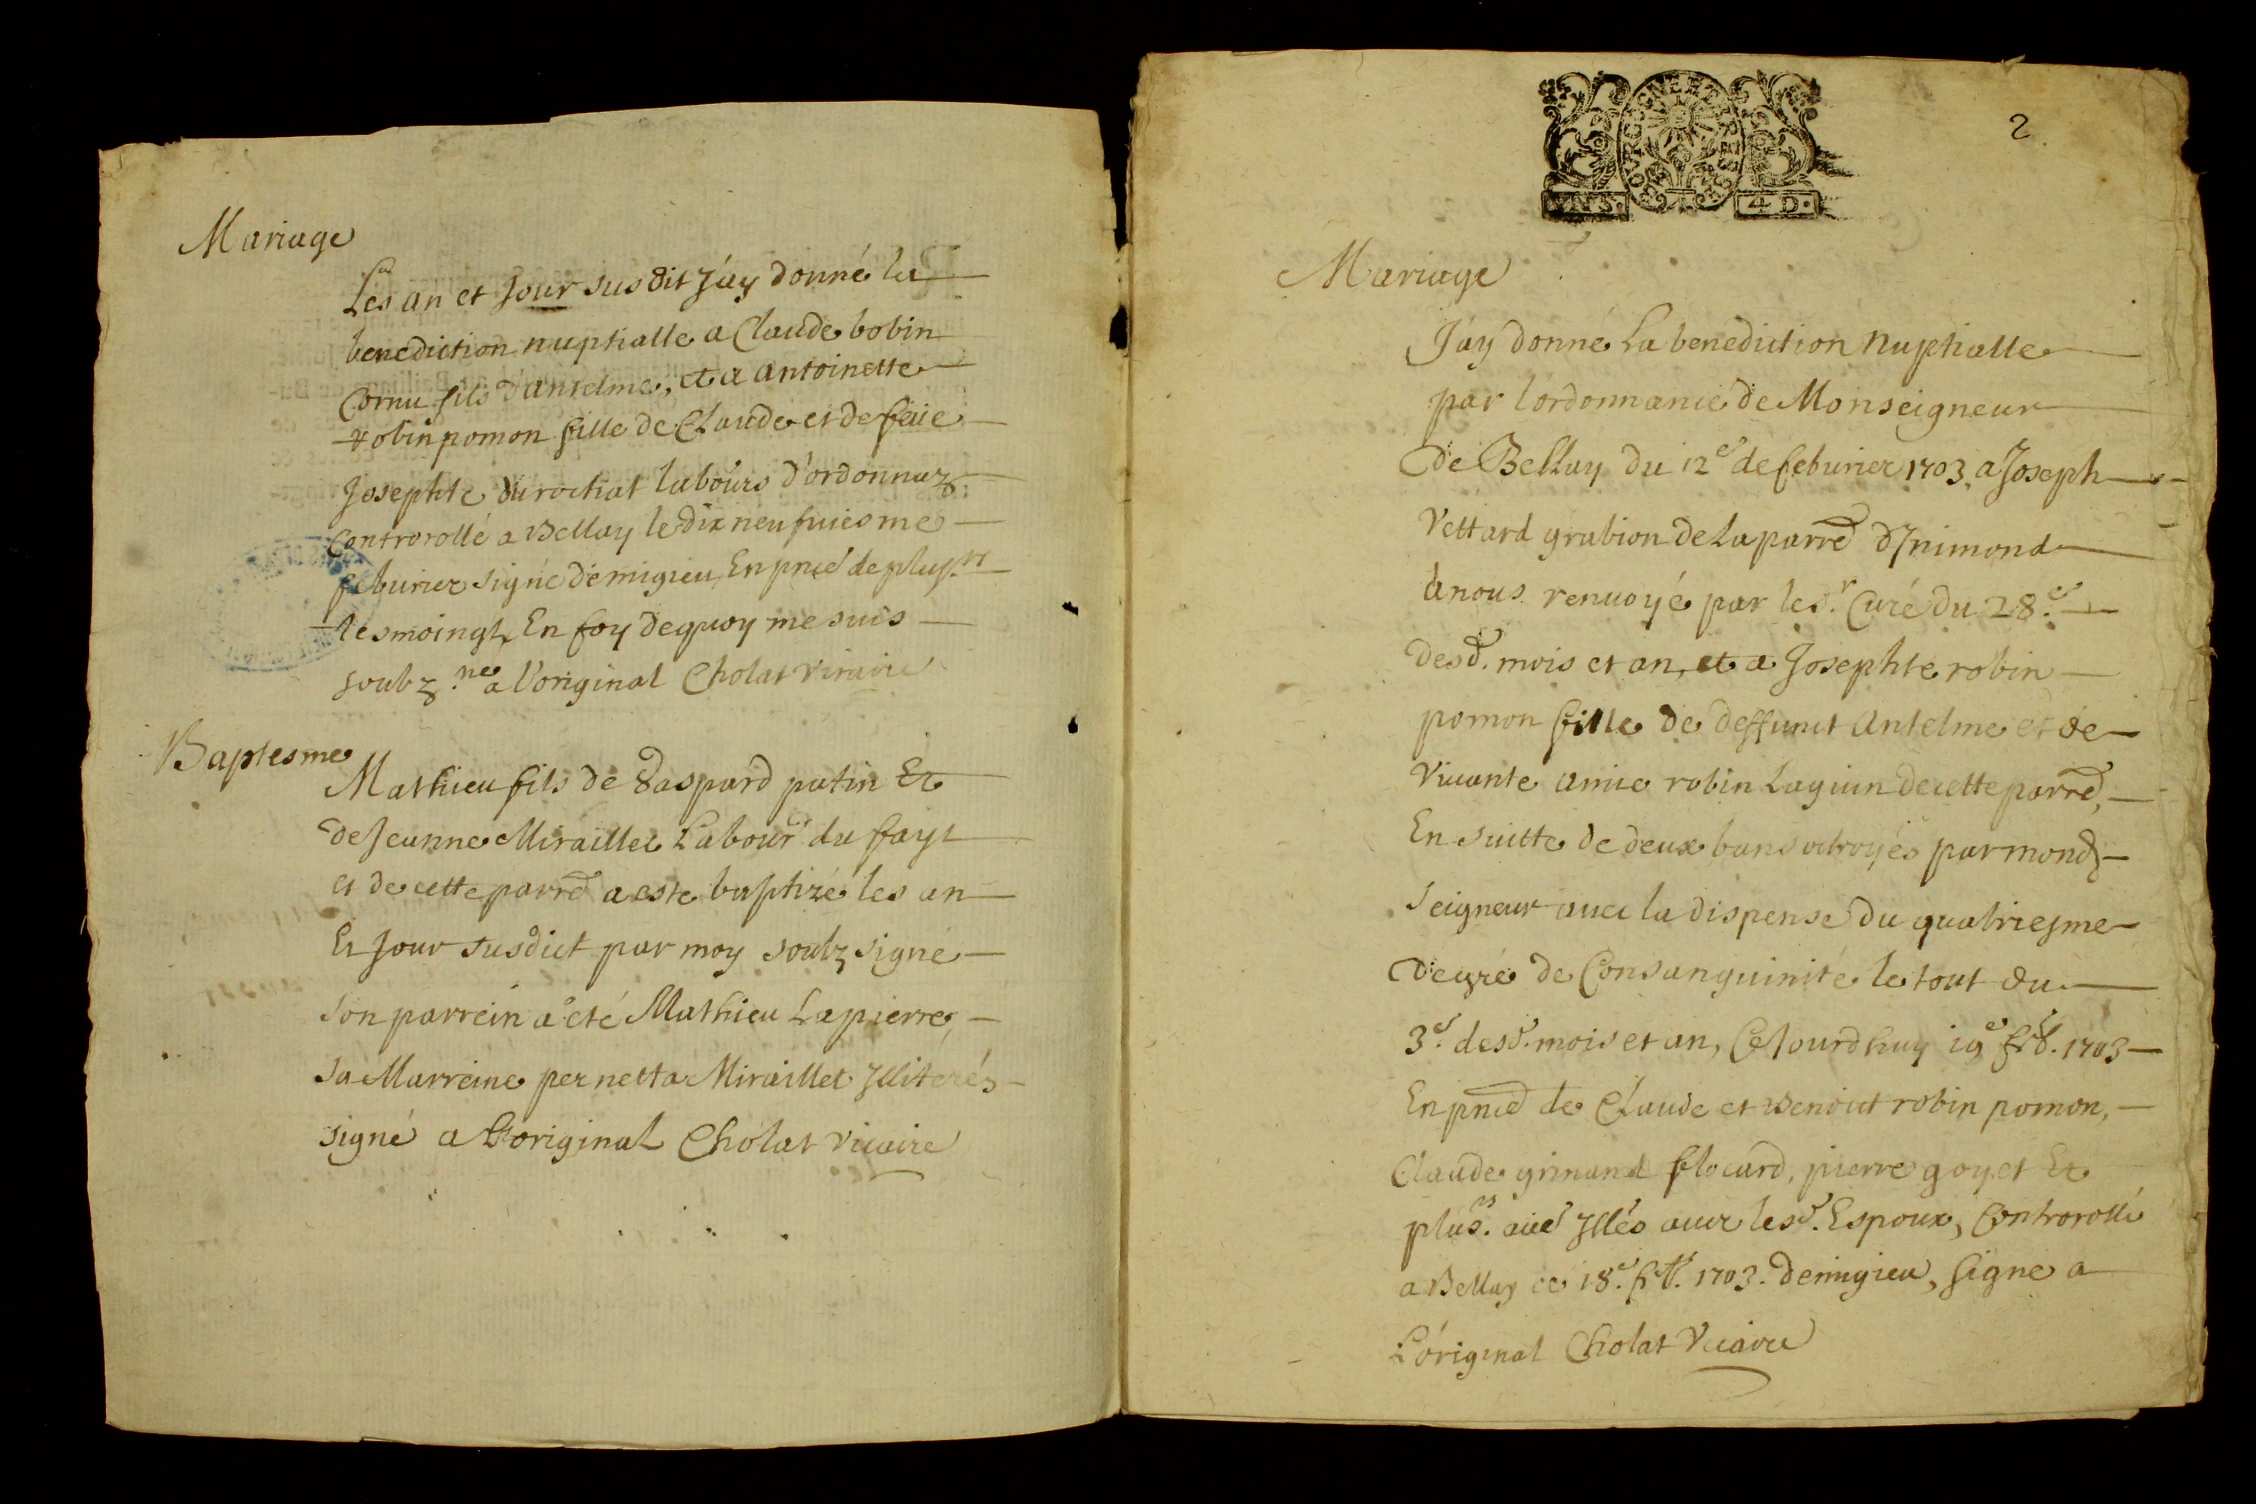 Mariage
Les an et Jour susdit J'ay donné la
benediction nuptialle a Claude bobin
Cornu fils d'antelme, et a antoinette
robin pomon fille de Claude et de feüe
Josephte du rochat labours d'ordonnaz
Controrollé a Bellay le dix neufuiesme
feburier signé demigieu, En pnce de plusrs
tesmoingts, En foy dequoy me suis
soubz.né a l'original Cholat vicaire
Baptesme
Mathieu fils de Gaspard patin Et
de Jeanne Miraillet Labourrs du fayt
et de cette parre a este baptizé les an
Et Jour susdict par moy soubz signé
son parrein a été Mathieu Lapierre,
sa Marreine pernetta Miraillet Jlliterés
signé a L'original Cholat vicaire
BOURGOGNE ET BRESSE
UN S. 4 D.
2
Mariage
J'ay donné La benediction nuptialle
par l'ordonnance de Monseigneur
de Bellay du 12e de feburier 1703, a Joseph
Vettard grabion de la parre d'Jnimond
a nous renuoyé par le sr. Curé du 28e.
desd. mois et an, et a Josephte robin
pomon fille de deffunct antelme et de
Viuante amie robin Lagiun de cette parre,
En suitte de deux bans octroyés par mond.
seigneur auec la dispense du quatriesme
degré de Consanguinité le tout du
3e. desd. mois et an, Ce Jourdhuy 19e feb. 1703
En pnce de Claude et Benoict robin pomon,
Claude grinand flocard, pierre goyet Et
plusrs. aue Jllés auec lesd. Espoux, Controrollé
a Bellay ce 18e. feb. 1703. demigieu, signé a
L'original Cholat Vicaire